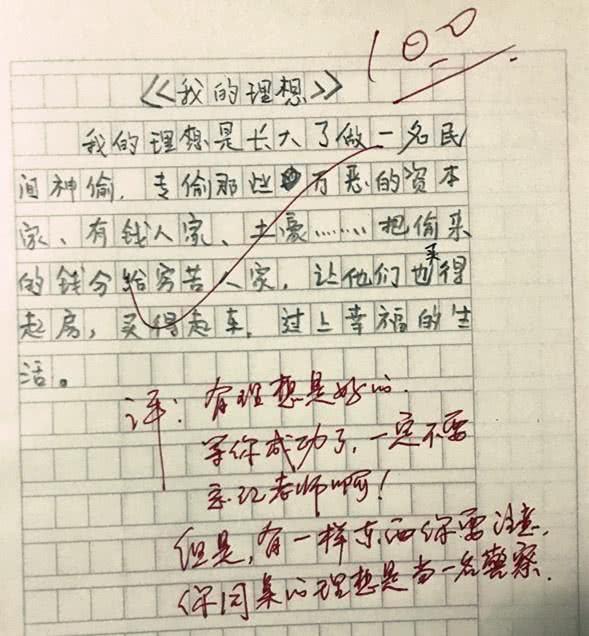 100
《我的理想》
我的理想是长大了做一名民
间神偷，专偷那些万恶的资本
家、有钱人家、土豪……把偷来
的钱分给穷苦人家，让他们也买得
起房，买得起车，过上幸福的生
活。
评：有理想是好的。
等你成功了，一定不要
忘记老师啊！
但是，有一样东西你要注意，
你同桌的理想是当一名警察。